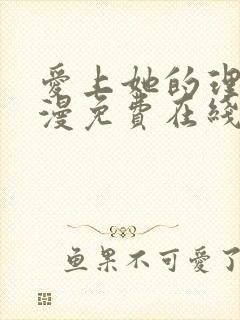 愛上她的理
漫免費在綫
鱼果不可愛了